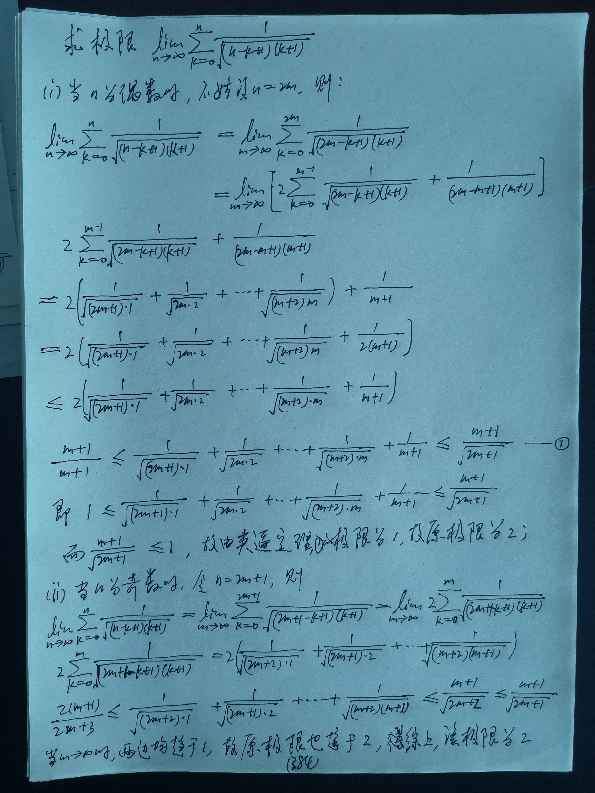 求极限 lim_{n→∞} ∑_{k=0}^{n} 1/√((n-k+1)(k+1))
(i) 当n为偶数时, 不妨设n=2m, 则:
lim_{n→∞} ∑_{k=0}^{n} 1/√((n-k+1)(k+1)) = lim_{m→∞} ∑_{k=0}^{2m} 1/√((2m-k+1)(k+1))
= lim_{m→∞} [2∑_{k=0}^{m-1} 1/√((2m-k+1)(k+1)) + 1/√((2m-m+1)(m+1))]
2∑_{k=0}^{m-1} 1/√((2m-k+1)(k+1)) + 1/√((2m-m+1)(m+1))
= 2(1/√((2m+1)·1) + 1/√(2m·2) + ··· + 1/√((m+2)m)) + 1/(m+1)
= 2(1/√((2m+1)·1) + 1/√(2m·2) + ··· + 1/√((m+2)m) + 1/(2(m+1)))
≤ 2(1/√((2m+1)·1) + 1/√(2m·2) + ··· + 1/√((m+2)·m) + 1/(m+1))
(m+1)/(m+1) ≤ 1/√((2m+1)·1) + 1/√(2m·2) + ··· + 1/√((m+2)·m) + 1/(m+1) ≤ (m+1)/√(2m+1) —— ①
即 1 ≤ 1/√((2m+1)·1) + 1/√(2m·2) + ··· + 1/√((m+2)·m) + 1/(m+1) ≤ (m+1)/√(2m+1)
而 (m+1)/√(2m+1) ≤ 1, 故由夹逼定理, 极限为1, 故原极限为2;
(ii) 当n为奇数时, 令n=2m+1, 则
lim_{n→∞} ∑_{k=0}^{n} 1/√((n-k+1)(k+1)) = lim_{m→∞} ∑_{k=0}^{2m+1} 1/√((2m+1-k+1)(k+1)) = lim_{m→∞} 2∑_{k=0}^{m} 1/√((2m+1-k+1)(k+1))
2∑_{k=0}^{m} 1/√((2m+1-k+1)(k+1)) = 2(1/√((2m+2)·1) + 1/√((2m+1)·2) + ··· + 1/√((m+2)(m+1)))
2(m+1)/(2m+3) ≤ 1/√((2m+2)·1) + 1/√((2m+1)·2) + ··· + 1/√((m+2)(m+1)) ≤ (m+1)/√(2m+2) ≤ (m+1)/√(2m+1)
当m→∞时, 两边均趋于1, 故原极限也等于2, 综上, 该极限为2
(384)